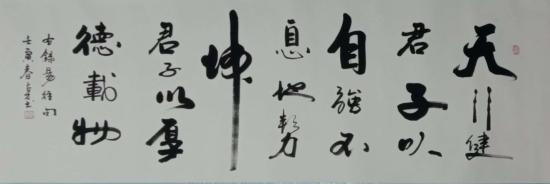 天行健
君子以
自強不
息地勢
坤
君子以厚
德載物
右錄易經句
壬寅春